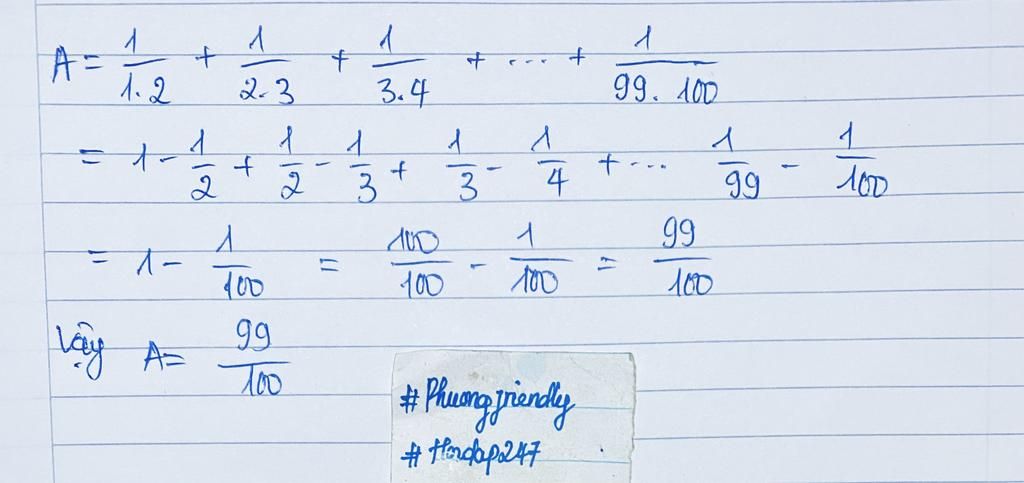 A = 1/1.2 + 1/2.3 + 1/3.4 + ... + 1/99.100
= 1 - 1/2 + 1/2 - 1/3 + 1/3 - 1/4 + ... 1/99 - 1/100
= 1 - 1/100 = 100/100 - 1/100 = 99/100
Vậy A = 99/100
#Phuongfriendly
#Hoidap247